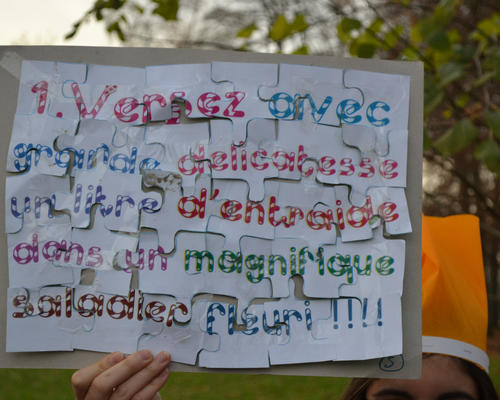 1. Versez avec
grande delicatesse
un litre d'entraide
dans un magnifique
saladier fleuri !!!!
5